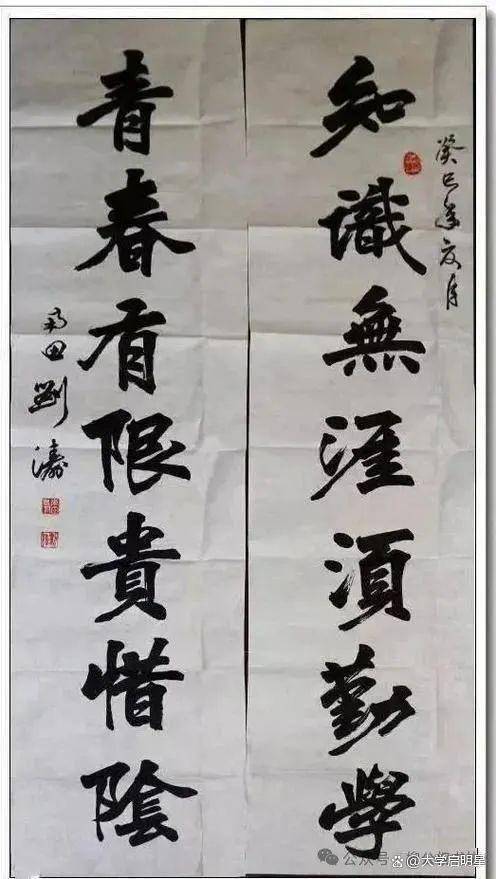 癸巳年夏月
知識無涯湏勤學
青春有限貴惜陰
劉濤
公众号
@大学启明星